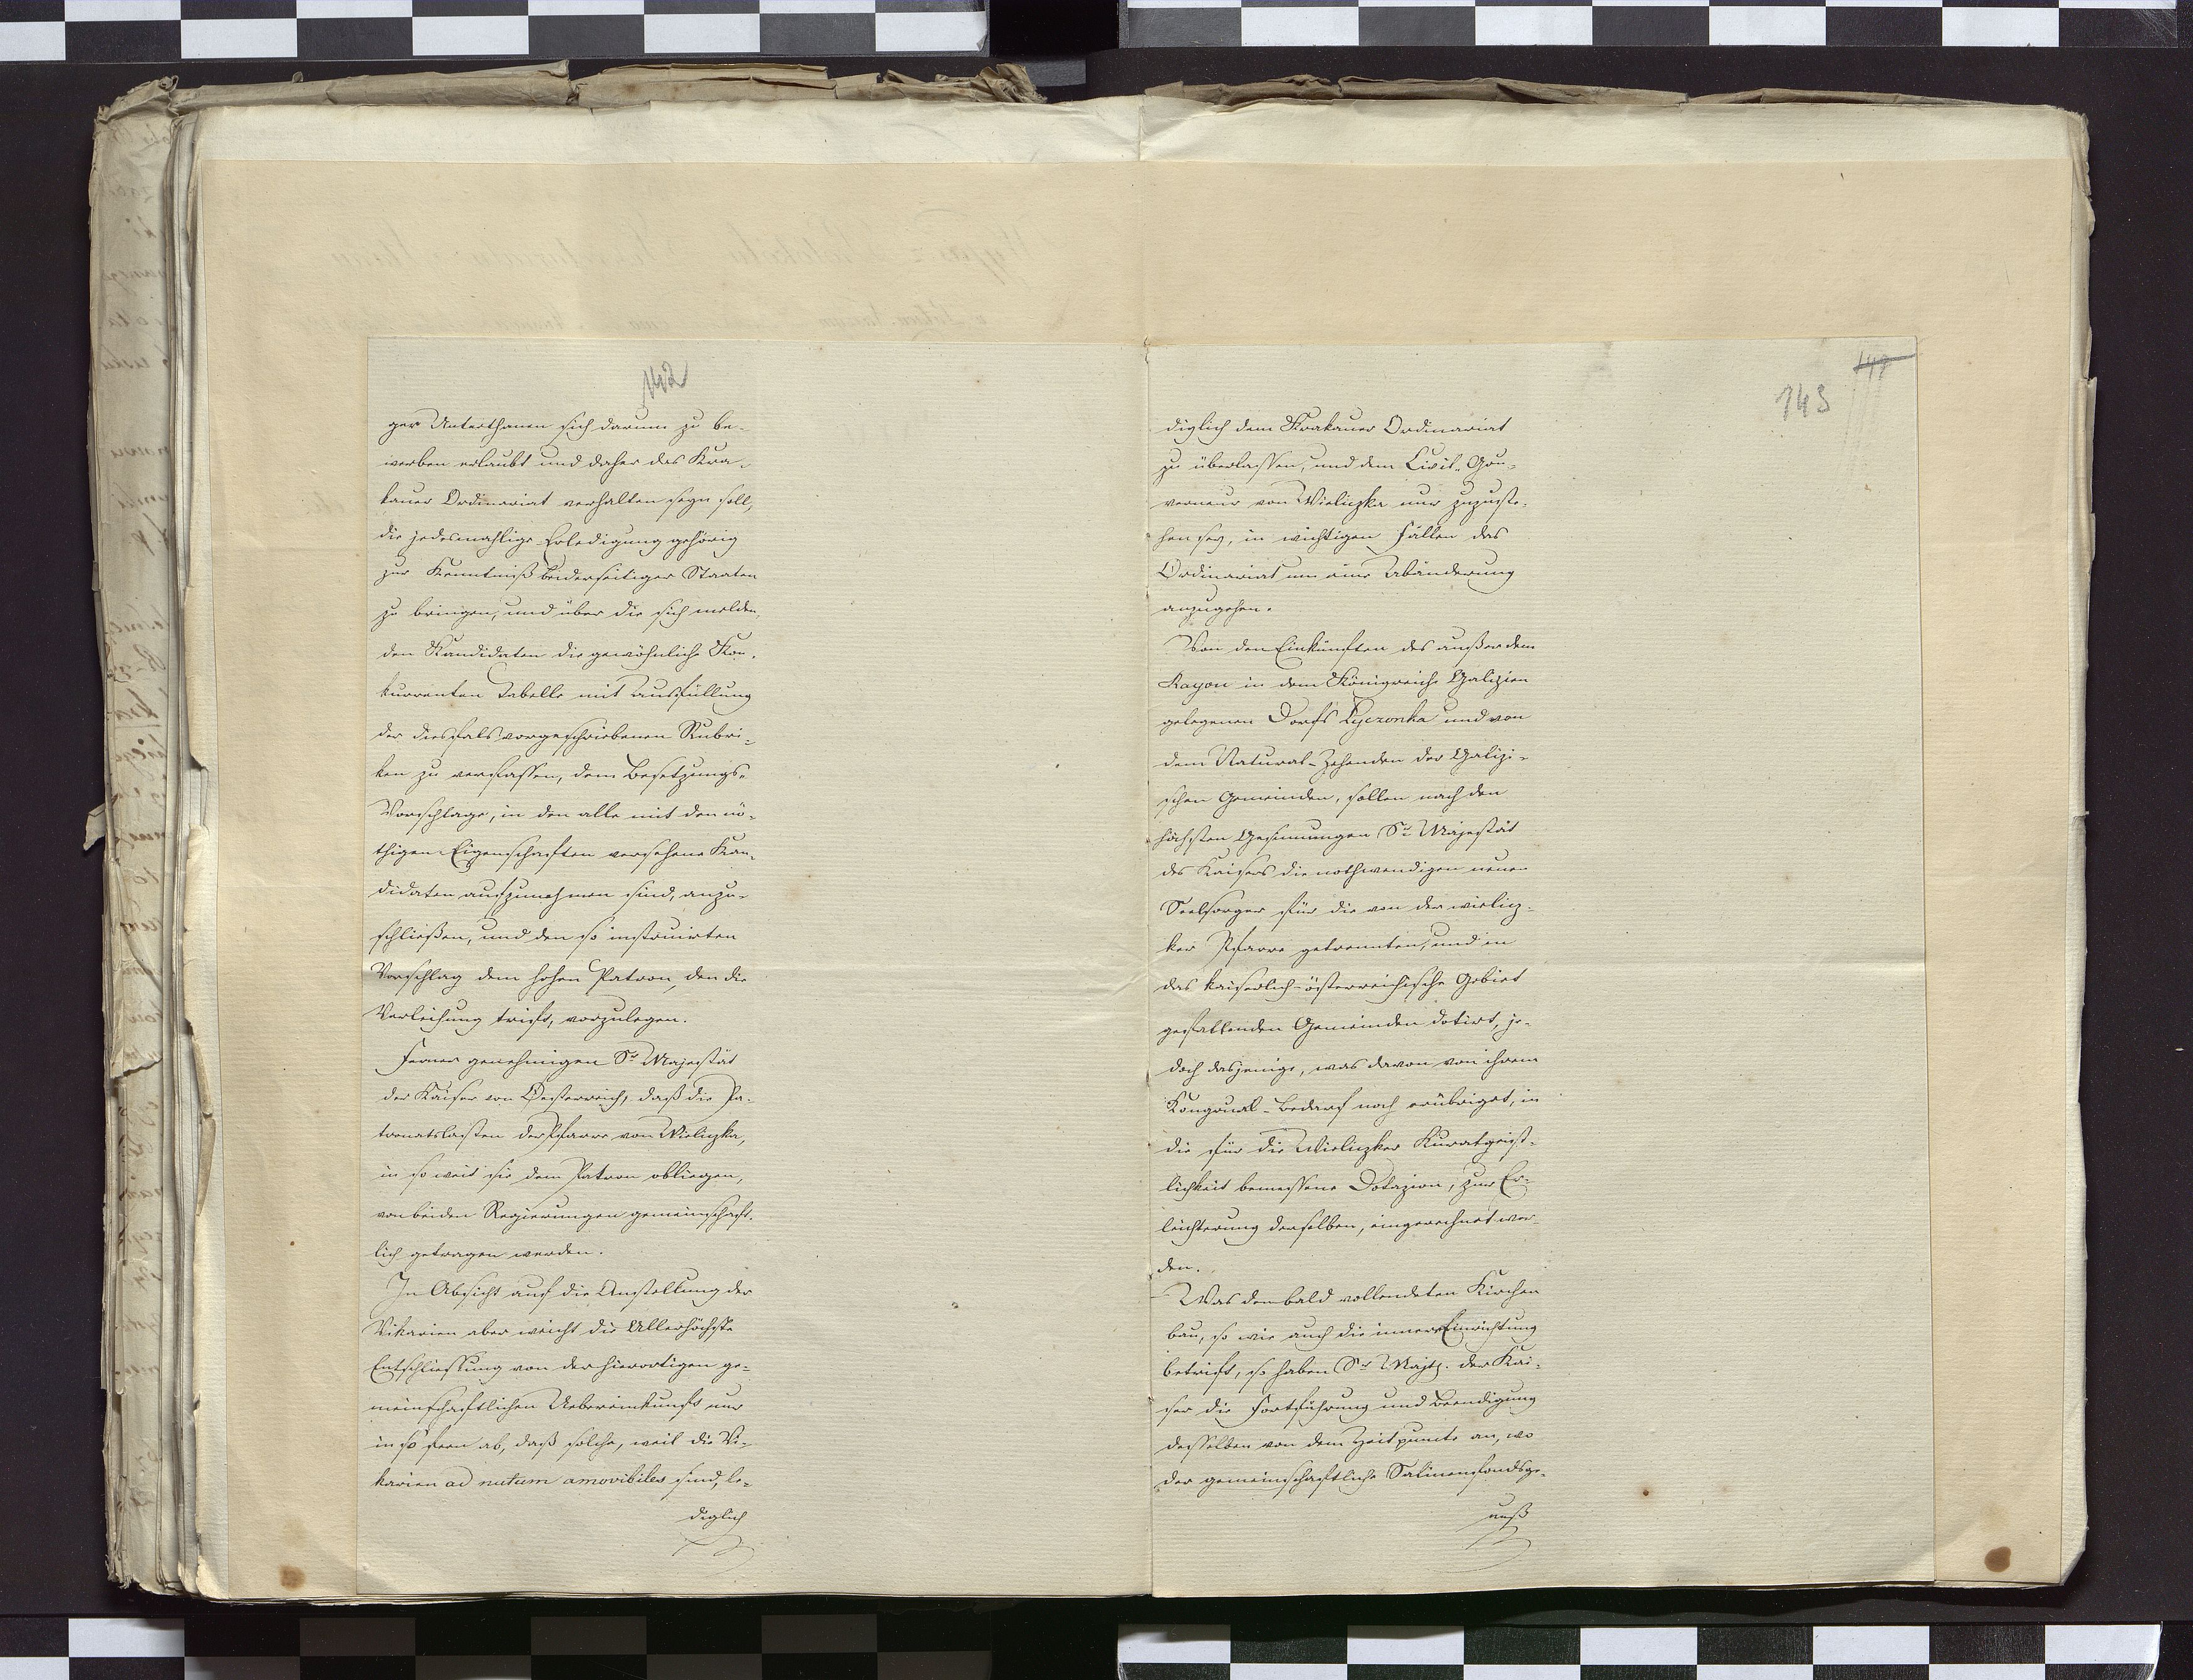 142
ger Unterthanen sich darum zu be-
werben erlaubt und daher das Kra-
kauer Ordinariat verhalten seyn soll,
die jedesmahlige Erledigung gehörig
zur Kenntniß beiderseitiger Staaten
zu bringen, und über die sich melden-
den Kandidaten die gewöhnliche Kon-
kurrenten Tabelle mit Ausfüllung
der diesfals vorgeschriebenen Rubri-
ken zu verfassen, dem Besetzungs-
Vorschlage, in den alle mit den nö-
thigen Eigenschaften versehene Kan-
didaten aufzunehmen sind, anzu-
schließen, und den so instruirten
Vorschlag dem hohen Patron, den die
Verleihung trifft, vorzulegen.
Ferner genehmigen Sr Majestät
der Kaiser von Oesterreich, daß die Pa-
tronatslasten der Pfarre von Wieliczka,
in so weit sie dem Patron obliegen,
von beiden Regierungen gemeinschaft-
lich getragen werden.
In Absicht auf die Anstellung der
Vikarien aber weicht die Allerhöchste
Entschliessung von der hierortigen ge-
meinschaftlichen Uebereinkunft nur
in so fern ab, daß solche, weil die Vi-
karien ad nutum amovibiles sind, le-
diglich
143
diglich dem Krakauer Ordinariat
zu überlassen, und dem Civil-Gou-
verneur von Wieliczka nur zuzuste-
hen sey, in wichtigen Fällen das
Ordinariat um eine Abänderung
anzugehen.
Von den Einkünften des außer dem
Rayon in dem Königreiche Galizien
gelegenen Dorfs Lyczonka und von
dem Natural-Zehenden der Galizi-
schen Gemeinden, sollen nach den
höchsten Gesinnungen Sr Majestät
des Kaisers die nothwendigen neuen
Seelsorger für die von der wielicz-
ker Pfarre getrennten, und in
das kaiserlich-österreichische Gebiet
gefallenden Gemeinden dotirt, je-
doch dasjenige, was davon von ihrem
Kongrual-Bedarf noch erübriget, in
die für die Wieliczker Kuratgeist-
lichkeit bemessene Dotazion, zur Er-
leichterung derselben, eingerechnet wer-
den.
Was den bald vollendeten Kirchen
bau, so wie auch die innere Einrichtung
betrifft, so haben Sr Majtz. der Kai-
ser die Fortführung und Beendigung
desselben von dem Zeitpunkte an, wo
der gemeinschaftliche Salinenfondsge-
nuß